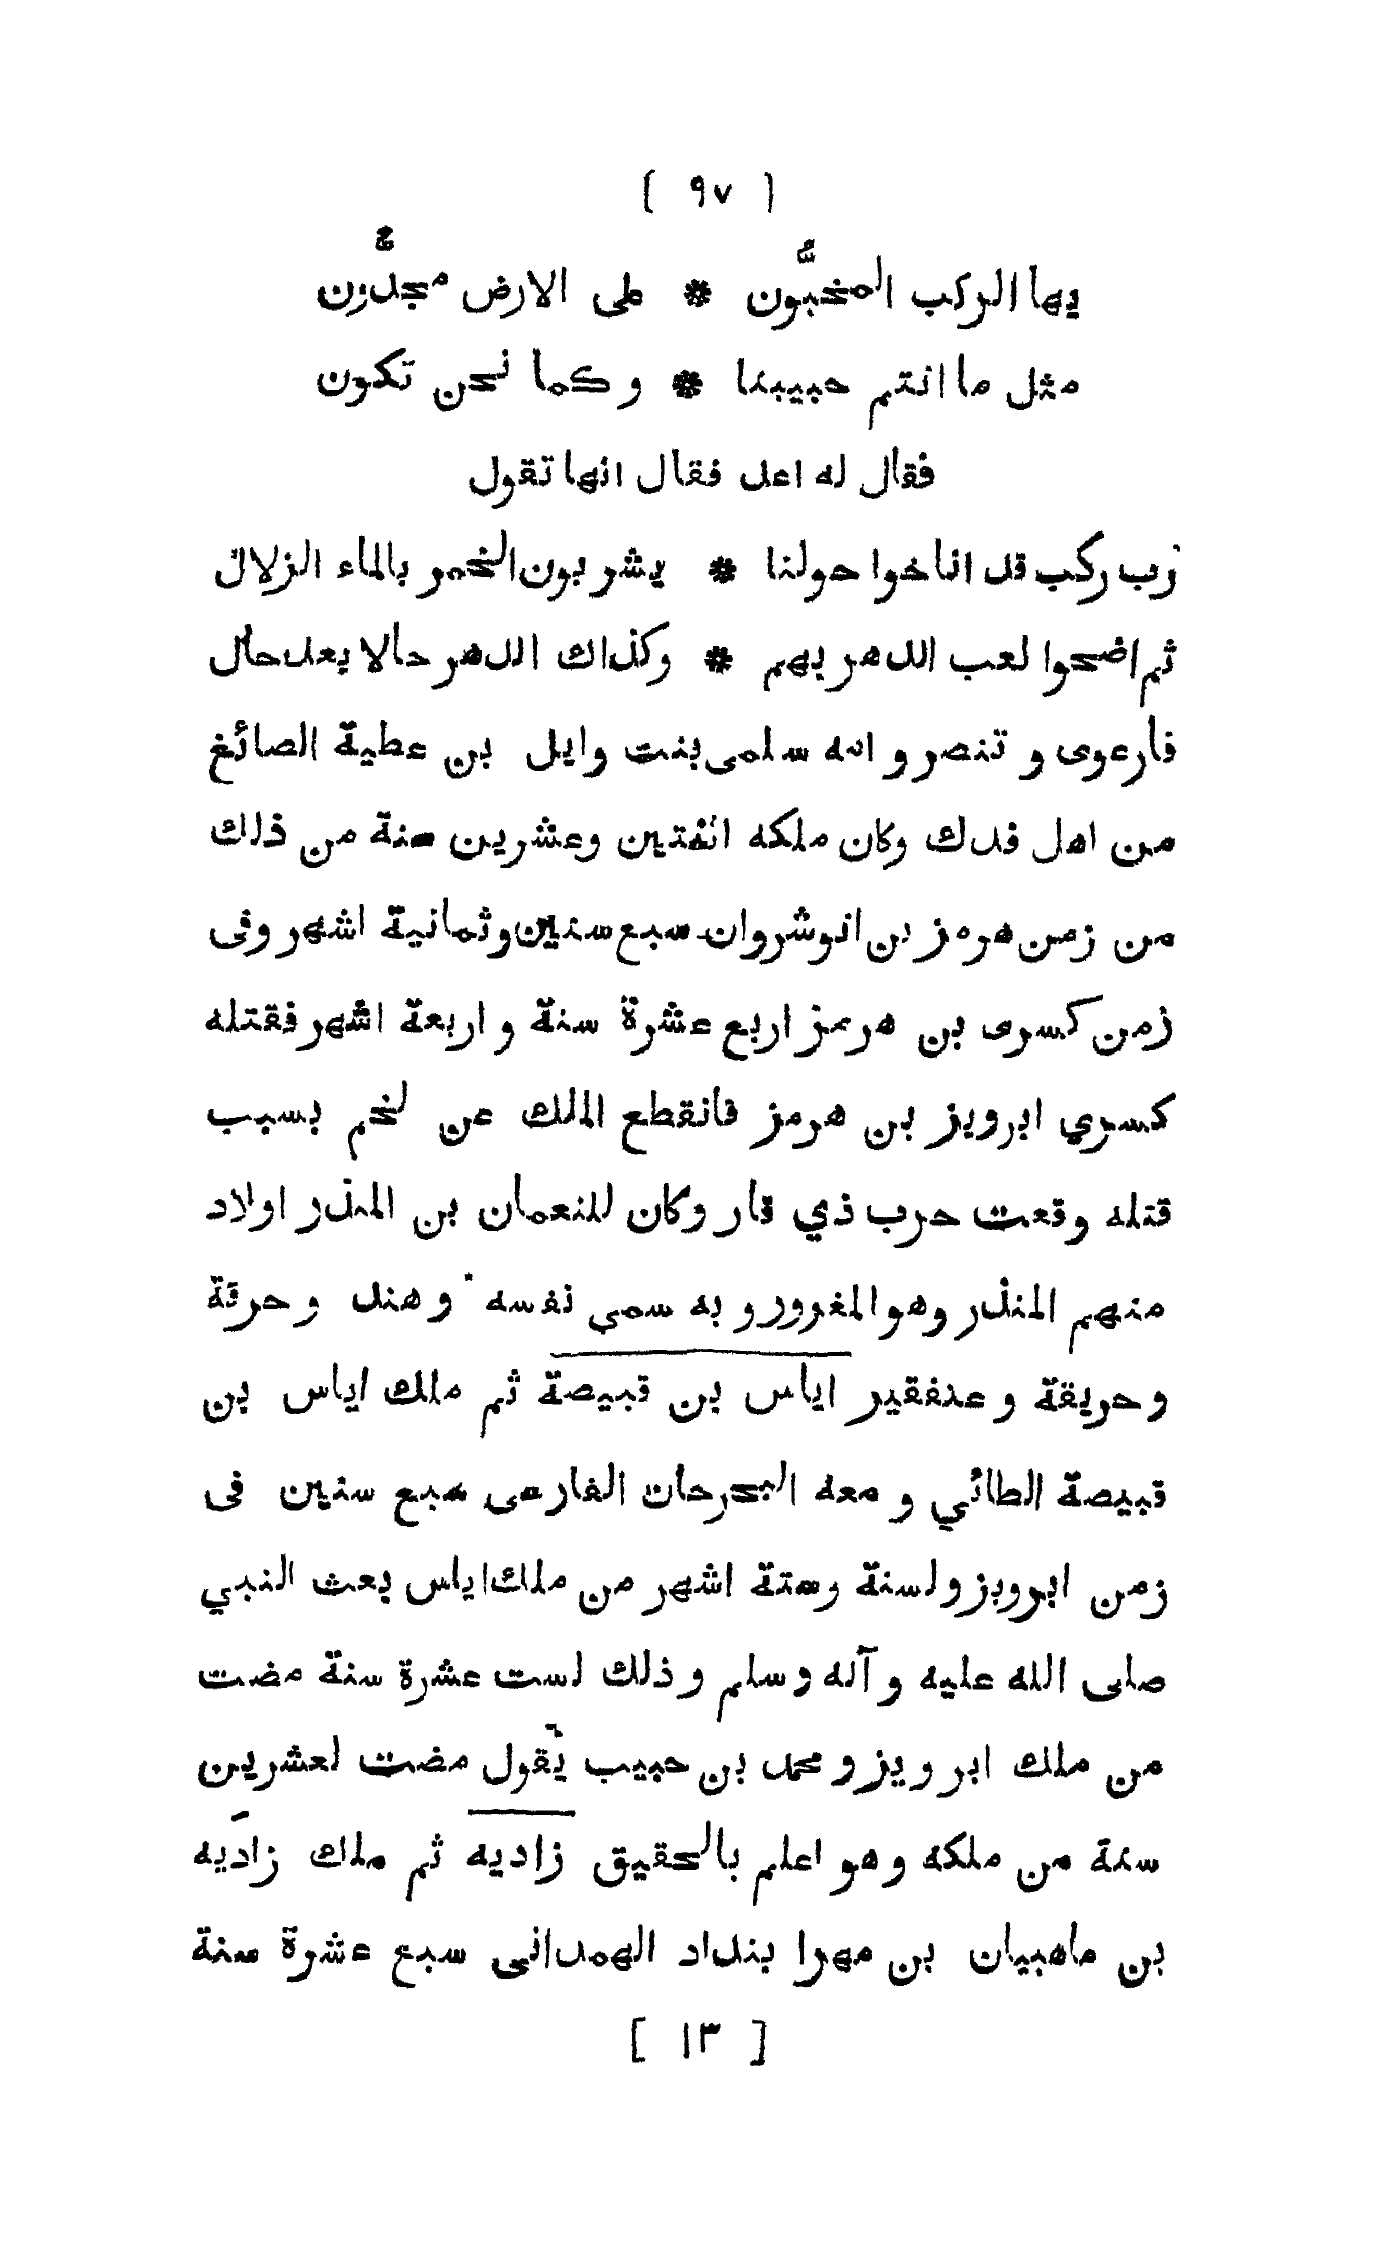 ( ٩٧ )
يها الركب المخبّون * على الارض مجدّون
مثل ما انتم حييبنا * وكما نحن تكون
فقال له اعد فقال انها تقول
رب ركب قد اناخوا حولنا * يشربون الخمر بالماء الزلال
ثم اضحوا لعب الدهر بهم * وكذاك الدهر حالا بعد حال
فارعوى و تنصر و امه سلمى بنت وايل بن عطية الصائغ
من اهل فدك وكان ملكه اثنتين وعشرين سنة من ذلك
من زمن هرمز بن انوشروان سبع سنين وثمانية اشهر وفى
زمن كسرى بن هرمز اربع عشرة سنة و اربعة اشهر فقتله
كسري ابرويز بن هرمز فانقطع الملك عن لخم بسبب
قتله وقعت حرب ذي قار وكان للنعمان بن المنذر اولاد
منهم المنذر وهو المغرور و به سمي نفسه وهند و حرقة
وحريقة و عنفقير اياس بن قبيصة ثم ملك اياس بن
قبيصة الطائي و معه البحرجان الفارسى سبع سنين فى
زمن ابرويز ولسنة وستة اشهر من ملك اياس بعث النبي
صلى الله عليه و آله وسلم وذلك لست عشرة سنة مضت
من ملك ابرويز و محمد بن حبيب يقول مضت لعشرين
سنة من ملكه وهو اعلم بالحقيق زاديه ثم ملك زاديه
بن ماهبيان بن مهرا بنداد الهمدانى سبع عشرة سنة
[ ١٣ ]